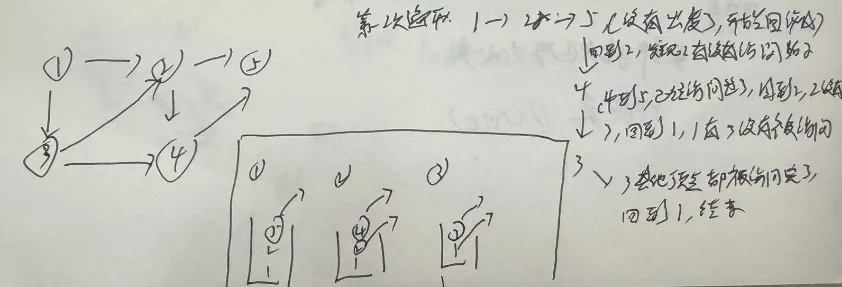 第2次遍历. 1→2→5 (没有出度了, 开始回溯)
回到2, 发现2有没有访问的4
4 (4到5, 已经访问过了, 回到2, 2没有
了, 回到1, 1有3没有被访问
3 3其他顶点都被访问完了,
回到1, 结束
① ② ⑤
③ ④
① ② ③
5 4 3
2